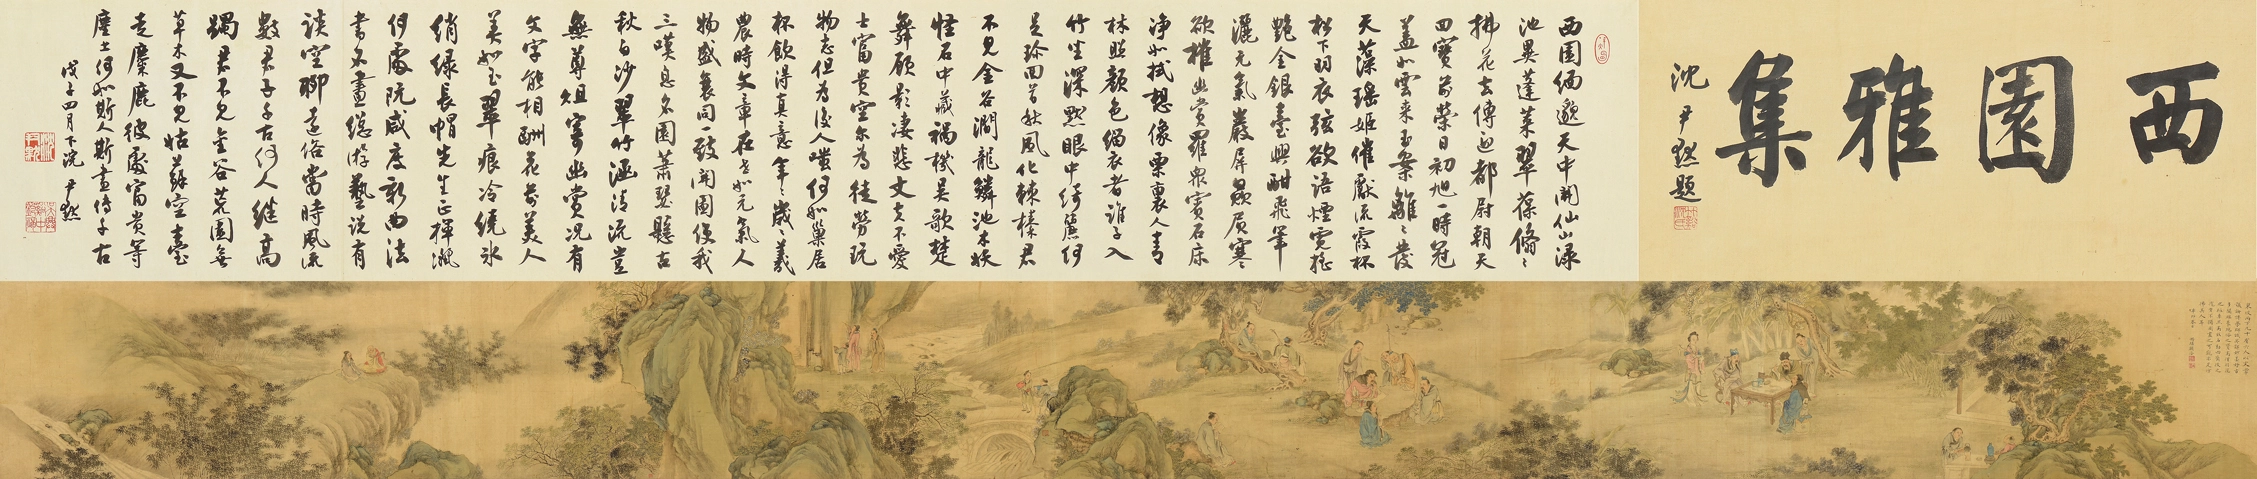 西園雅集
沈尹默題
西園緬邈天中開仙山渌
池異蓬萊翠葆脩〻
拂花去傳迎都尉朝天
回寶前榮日初旭一時冠
蓋如雲來玉案離〻發
天藻瑤姬催獻流霞杯
松下羽衣弦欲語煙霓搖
艷金銀臺興酣飛筆
灑元氣巖屏贔屓寒
欲摧幽賞羅衆賓石床
淨如拭想像栗裏人青
林照顏色緇衣者誰子入
竹坐深默眼中綺麗何
足珍回首秋風化棘榛君
不見金谷澗龍鱗池木妖
怪石中藏禍機吳歌楚
舞顧影凄悲丈夫不愛
士富貴空爾為徒勞玩
物志但為後人嗤何如巢居
杯飲得真意年〻歲〻羲
農時文章在世如元氣人
物盛衰同一致開圖使我
三嘆息名園蕭瑟懸古
秋白沙翠竹涵清流豈
無尊俎寄幽賞況有
文字能相酬花前美人
美如玉翠痕冷繞冰
綃綠長帽先生正揮灑
何處阮咸度新曲法
書名畫總游藝說有
談空聊遠俗當時風流
數君子千古何人繼高
躅君不見金谷荒園無
草木又不見姑蘇空臺
走麋鹿彼處富貴等
塵土何如斯人斯畫傳千古
戊子四月下浣 尹默